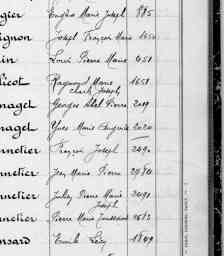 gier Eugène Marie Joseph 885
ignon Joseph François Marie 1650
in Louis Pierre Marie 451
licot Raymond Marie 1658
Joseph
naget Georges Abel Pierre 209
naget Yves Marie Eugène 2020
nnelier François Joseph 2490
nnelier Jean Marie Pierre 2980
nnelier Julien Pierre Marie 3090
Joseph
nnelier Pierre Marie Toussaint 1612
nsard Emile Léon 1809